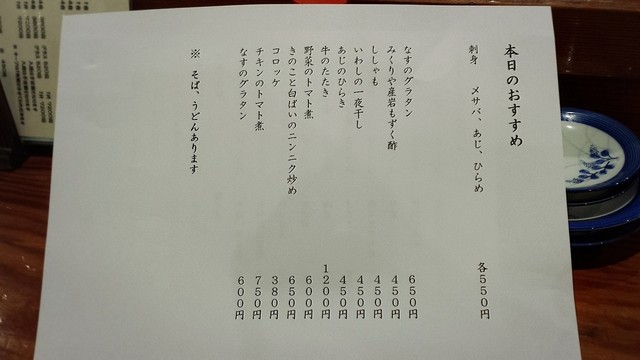 本日のおすすめ
刺身 メサバ、あじ、ひらめ 各550円
なすのグラタン 650円
みくりや産岩もずく酢 450円
ししゃも 450円
いわしの一夜干し 450円
あじのひらき 450円
牛のたたき 1200円
野菜のトマト煮 600円
きのこと白ばいのニンニク炒め 650円
コロッケ 380円
チキンのトマト煮 750円
なすのグラタン 600円
※ そば、うどんあります